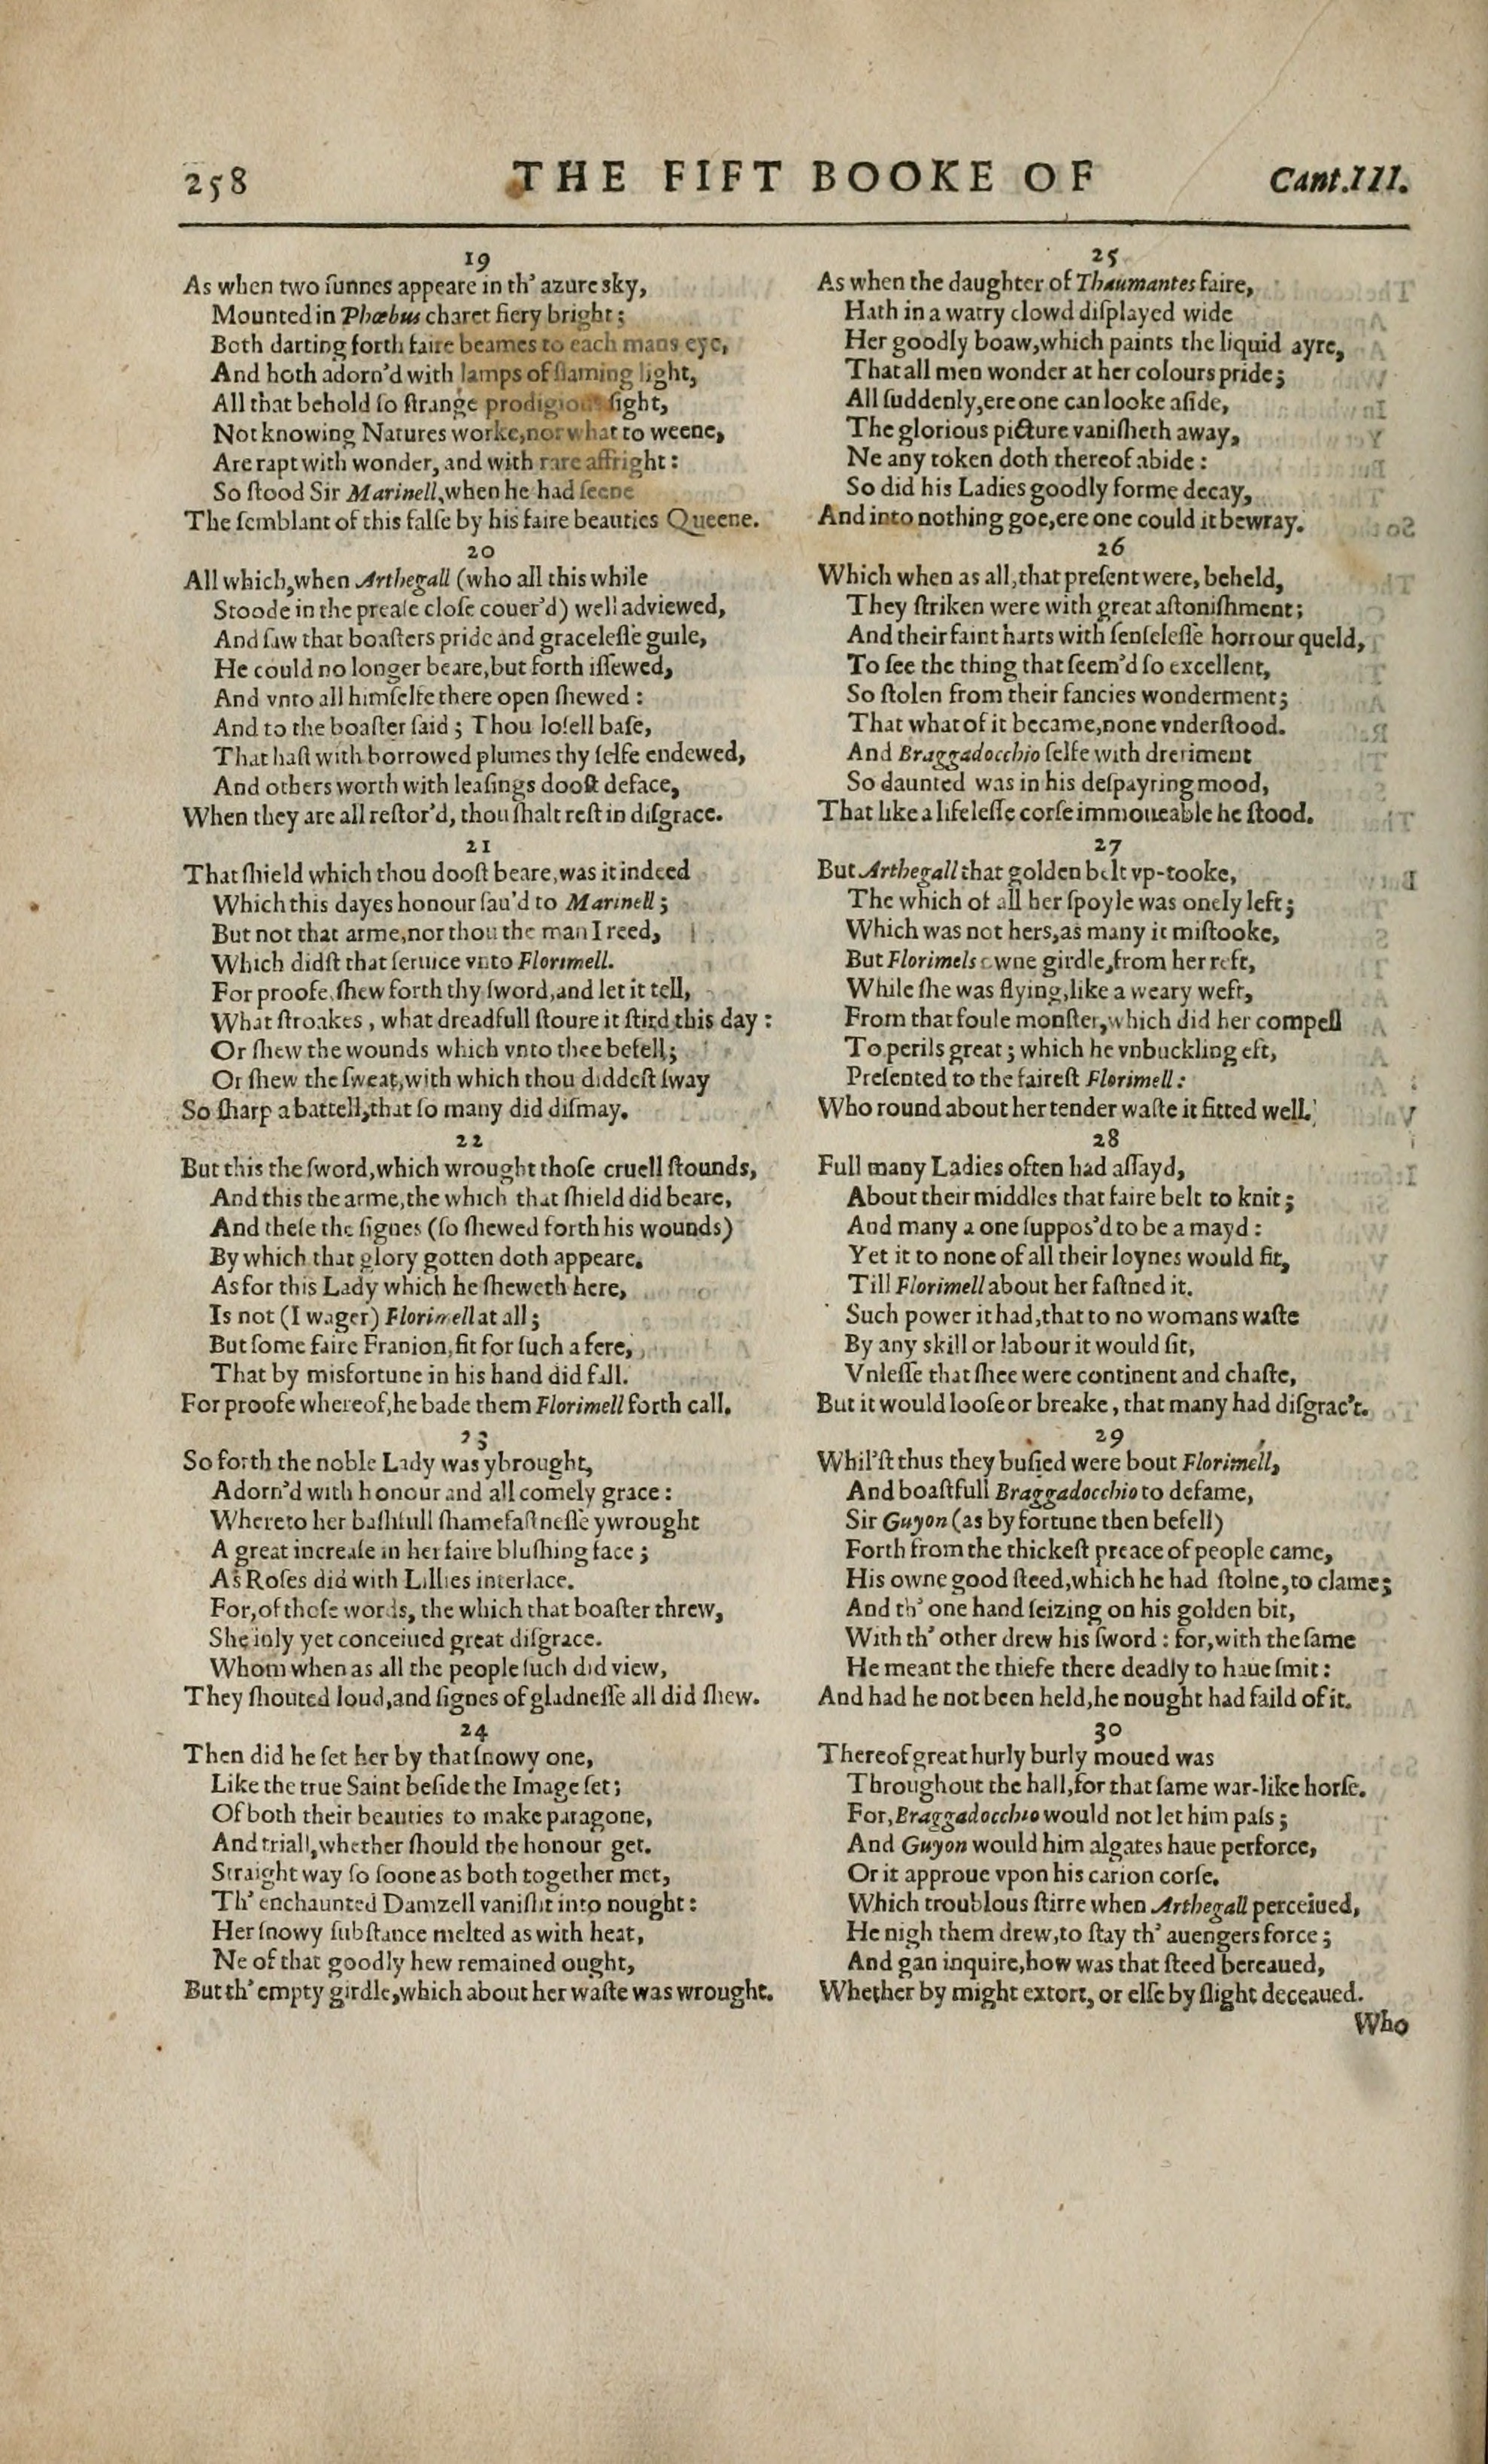 258 THE FIFT BOOKE OF Cant.III.
19
As when two ſunnes appeare in th' azure sky,
Mounted in Phœbus charet fiery bright;
Both darting forth faire beames to each mans eye,
And both adorn'd with lamps of flaming light,
All that behold ſo ſtrange prodigious ſight,
Not knowing Natures worke, nor what to weene,
Are rapt with wonder, and with rare affright:
So ſtood Sir Marinell, when he had ſeene
The ſemblant of this falſe by his faire beauties Queene.
20
All which, when Arthegall (who all this while
Stoode in the preaſe cloſe couer'd) well adviewed,
And ſaw that boaſters pride and graceleſſe guile,
He could no longer beare, but forth iſſewed,
And vnto all himſelfe there open ſhewed:
And to the boaſter ſaid; Thou loſell baſe,
That haſt with borrowed plumes thy ſelfe endewed,
And others worth with leaſings dooſt deface,
When they are all reſtor'd, thou ſhalt reſt in diſgrace.
21
That ſhield which thou dooſt beare, was it indeed
Which this dayes honour ſau'd to Marinell;
But not that arme, nor thou the man I reed,
Which didſt that ſeruice vnto Florimell.
For proofe, ſhew forth thy ſword, and let it tell,
What ſtroakes, what dreadfull ſtoure it ſtird this day:
Or ſhew the wounds which vnto thee befell;
Or ſhew the ſweat, with which thou diddeſt ſway
So ſharp a battell, that ſo many did diſmay.
22
But this the ſword, which wrought thoſe cruell ſtounds,
And this the arme, the which that ſhield did beare,
And theſe the ſignes (ſo ſhewed forth his wounds)
By which that glory gotten doth appeare.
As for this Lady which he ſheweth here,
Is not (I wager) Florimell at all;
But ſome faire Franion, fit for ſuch a fere,
That by misfortune in his hand did fall.
For proofe whereof, he bade them Florimell forth call.
23
So forth the noble Lady was ybrought,
Adorn'd with honour and all comely grace:
Whereto her baſhfull ſhamefaſtneſſe ywrought
A great increaſe in her faire bluſhing face;
As Roſes did with Lillies interlace.
For, of thoſe words, the which that boaſter threw,
She inly yet conceiued great diſgrace.
Whom when as all the people ſuch did view,
They ſhouted loud, and ſignes of gladneſſe all did ſhew.
24
Then did he ſet her by that ſnowy one,
Like the true Saint beſide the Image ſet;
Of both their beauties to make paragone,
And triall, whether ſhould the honour get.
Straight way ſo ſoone as both together met,
Th' enchaunted Damzell vaniſht into nought:
Her ſnowy ſubſtance melted as with heat,
Ne of that goodly hew remained ought,
But th' empty girdle, which about her waſte was wrought.
25
As when the daughter of Thaumantes faire,
Hath in a watry clowd diſplayed wide
Her goodly boaw, which paints the liquid ayre,
That all men wonder at her colours pride;
All ſuddenly, ere one can looke aſide,
The glorious picture vaniſheth away,
Ne any token doth thereof abide:
So did his Ladies goodly forme decay,
And into nothing goe, ere one could it bewray.
26
Which when as all, that preſent were, beheld,
They ſtriken were with great aſtoniſhment;
And their faint harts with ſenſeleſſe horrour queld,
To ſee the thing, that ſeem'd ſo excellent,
So ſtolen from their fancies wonderment;
That what of it became, none vnderſtood.
And Braggadocchio ſelfe with dreriment
So daunted was in his deſpayring mood,
That like a lifeleſſe corſe immoueable he ſtood.
27
But Arthegall that golden belt vp-tooke,
The which of all her ſpoyle was onely left;
Which was not hers, as many it miſtooke,
But Florimels owne girdle, from her reft,
While ſhe was flying, like a weary weft,
From that foule monſter, which did her compell
To perils great; which he vnbuckling eft,
Preſented to the faireſt Florimell:
Who round about her tender waſte it fitted well.
28
Full many Ladies often had aſſayd,
About their middles that faire belt to knit;
And many a one ſuppos'd to be a mayd:
Yet it to none of all their loynes would fit,
Till Florimell about her faſtned it.
Such power it had, that to no womans waſte
By any skill or labour it would fit,
Vnleſſe that ſhee were continent and chaſte,
But it would looſe or breake, that many had diſgrac't.
29
Whil'ſt thus they buſied were bout Florimell,
And boaſtfull Braggadocchio to defame,
Sir Guyon (as by fortune then befell)
Forth from the thickeſt preace of people came,
His owne good ſteed, which he had ſtolne, to clame;
And th' one hand ſeizing on his golden bit,
With th' other drew his ſword: for, with the ſame
He meant the thiefe there deadly to haue ſmit:
And had he not been held, he nought had faild of it.
30
Thereof great hurly burly moued was
Throughout the hall, for that ſame war-like horſe.
For, Braggadocchio would not let him paſs;
And Guyon would him algates haue perforce,
Or it approue vpon his carion corſe.
Which troublous ſtirre when Arthegall perceiued,
He nigh them drew, to ſtay th' auengers force;
And gan inquire, how was that ſteed bereaued,
Whether by might extort, or elſe by ſlight deceaued.
Who